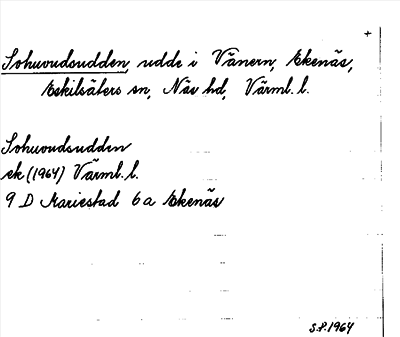 Sohuvudsudden, udde i Vänern, Ekenäs,
Eskilsäters sn, Näs hd, Värml. l.
Sohuvudsudden
ek (1964) Värml. l.
9 D Mariestad 6 a Ekenäs
S.P. 1964